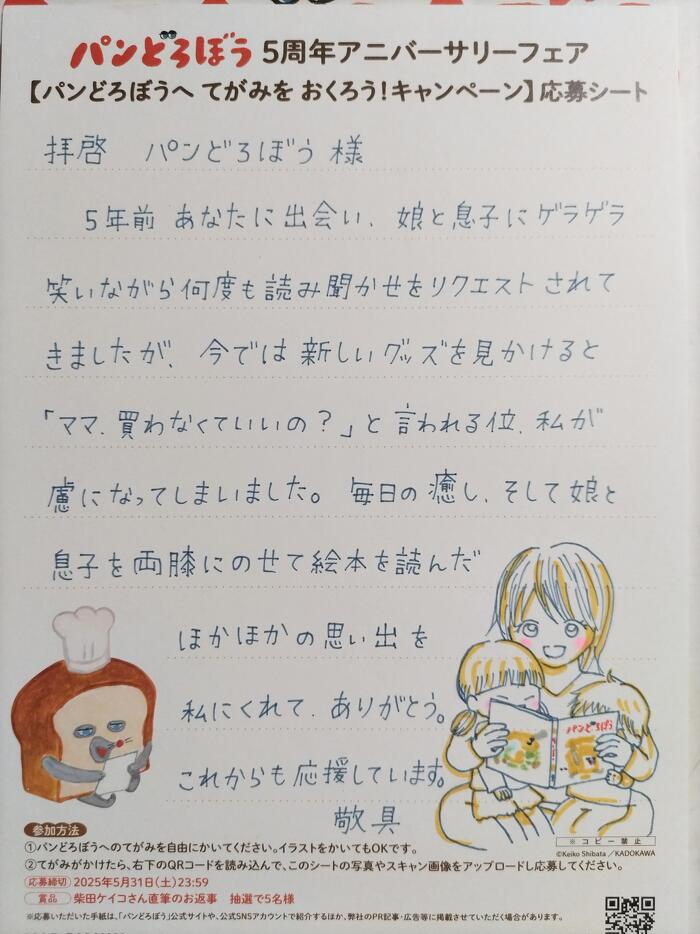 パンどろぼう 5周年アニバーサリーフェア
【パンどろぼうへ てがみを おくろう！キャンペーン】応募シート
拝啓　パンどろぼう 様
5年前 あなたに出会い、娘と息子にゲラゲラ
笑いながら何度も読み聞かせをリクエストされて
きましたが、今では新しいグッズを見かけると
「ママ、買わなくていいの？」と言われる位、私が
慮になってしまいました。毎日の癒し、そして娘と
息子を両膝にのせて絵本を読んだ
ほかほかの思い出を
私にくれて、ありがとう。
これからも応援しています。
敬具
パンどろぼう
※コピー禁止
©Keiko Shibata／KADOKAWA
参加方法
①パンどろぼうへのてがみを自由にかいてください。イラストをかいてもOKです。
②てがみがかけたら、右下のQRコードを読み込んで、このシートの写真やスキャン画像をアップロードし応募してください。
応募締切 2025年5月31日(土)23:59
賞品 柴田ケイコさん直筆のお返事　抽選で5名様
※応募いただいた手紙は、「パンどろぼう」公式サイトや、公式SNSアカウントで紹介するほか、弊社のPR記事・広告等に掲載させていただく場合があります。